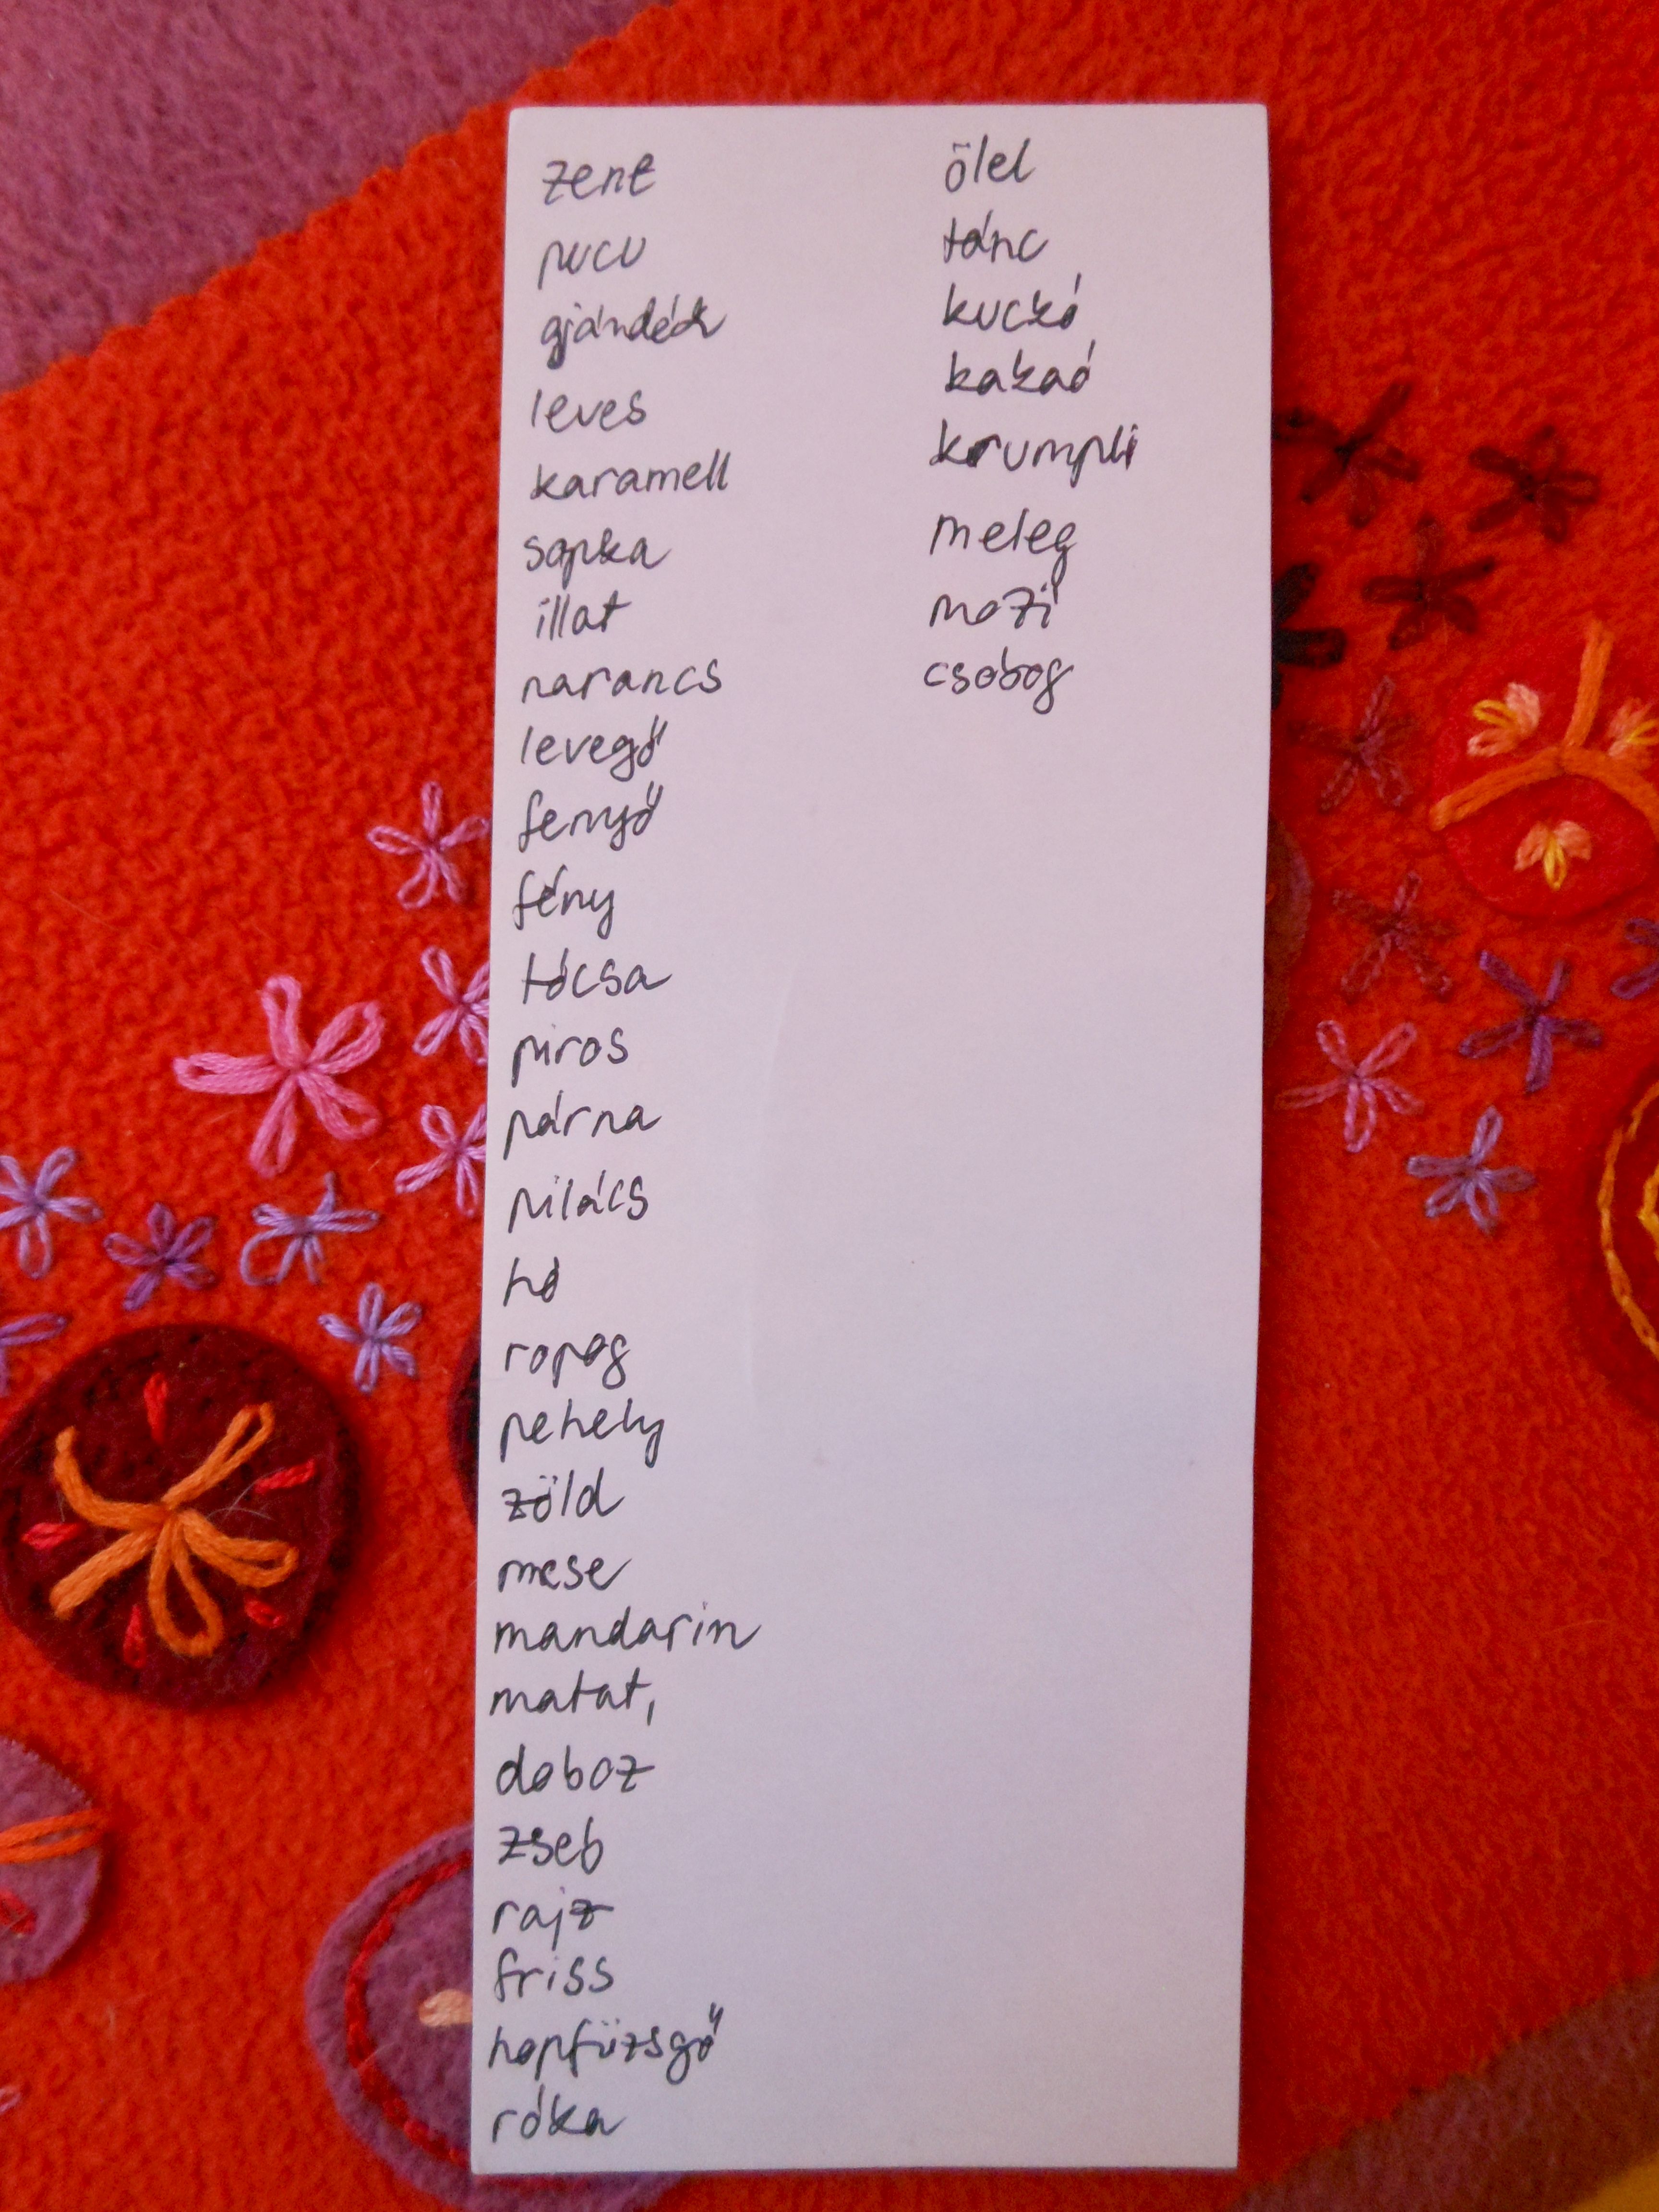 zene
pucu
ajándék
leves
karamell
sapka
illat
narancs
levegő
fenyő
fény
tócsa
piros
párna
pilács
hó
ropog
pehely
zöld
mese
mandarin
matat,
doboz
zseb
rajz
friss
hopfüzsgő
róka
ölel
tánc
kuckó
kakaó
krumpli
meleg
mozi
csobog